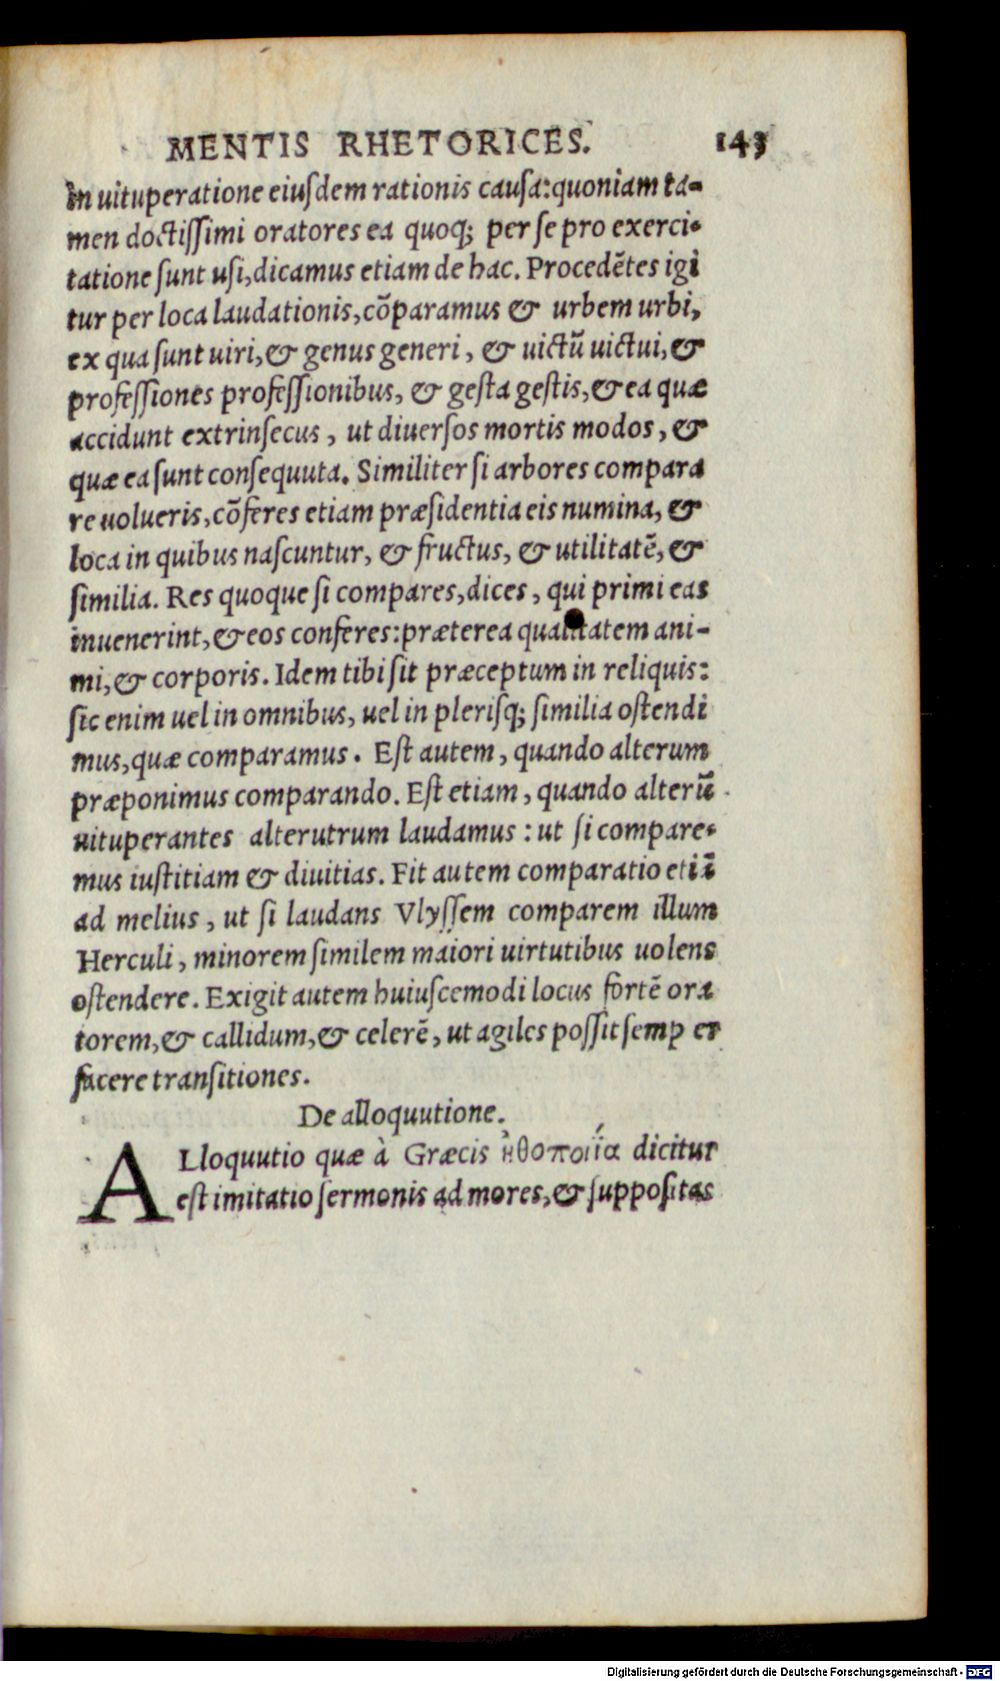 MENTIS RHETORICES. 143
in uituperatione eiusdem rationis causa: quoniam ta=
men doctissimi oratores ea quoq; per se pro exerci=
tatione sunt usi, dicamus etiam de hac. Procedẽtes igi
tur per loca laudationis, cõparamus & urbem urbi,
ex qua sunt uiri, & genus generi, & uictũ uictui, &
professiones professionibus, & gesta gestis, & ea quæ
accidunt extrinsecus, ut diuersos mortis modos, &
quæ ea sunt consequuta. Similiter si arbores compara
re uolueris, cõferes etiam præsidentia eis numina, &
loca in quibus nascuntur, & fructus, & utilitatẽ, &
similia. Res quoque si compares, dices, qui primi eas
inuenerint, & eos conferes: præterea quantitatem ani-
mi, & corporis. Idem tibi sit præceptum in reliquis:
sic enim uel in omnibus, uel in plerisq; similia ostendi
mus, quæ comparamus. Est autem, quando alterum
præponimus comparando. Est etiam, quando alterũ
uituperantes alterutrum laudamus: ut si compare=
mus iustitiam & diuitias. Fit autem comparatio etiã
ad melius, ut si laudans Vlyssem comparem illum
Herculi, minorem similem maiori uirtutibus uolens
ostendere. Exigit autem huiuscemodi locus fortẽ ora
torem, & callidum, & celerẽ, ut agiles possit semꝑ et
facere transitiones.
De alloquutione.
ALloquutio quæ à Græcis ἠθοποιΐα dicitur
est imitatio sermonis ad mores, & suppositas
Digitalisierung gefördert durch die Deutsche Forschungsgemeinschaft - DFG